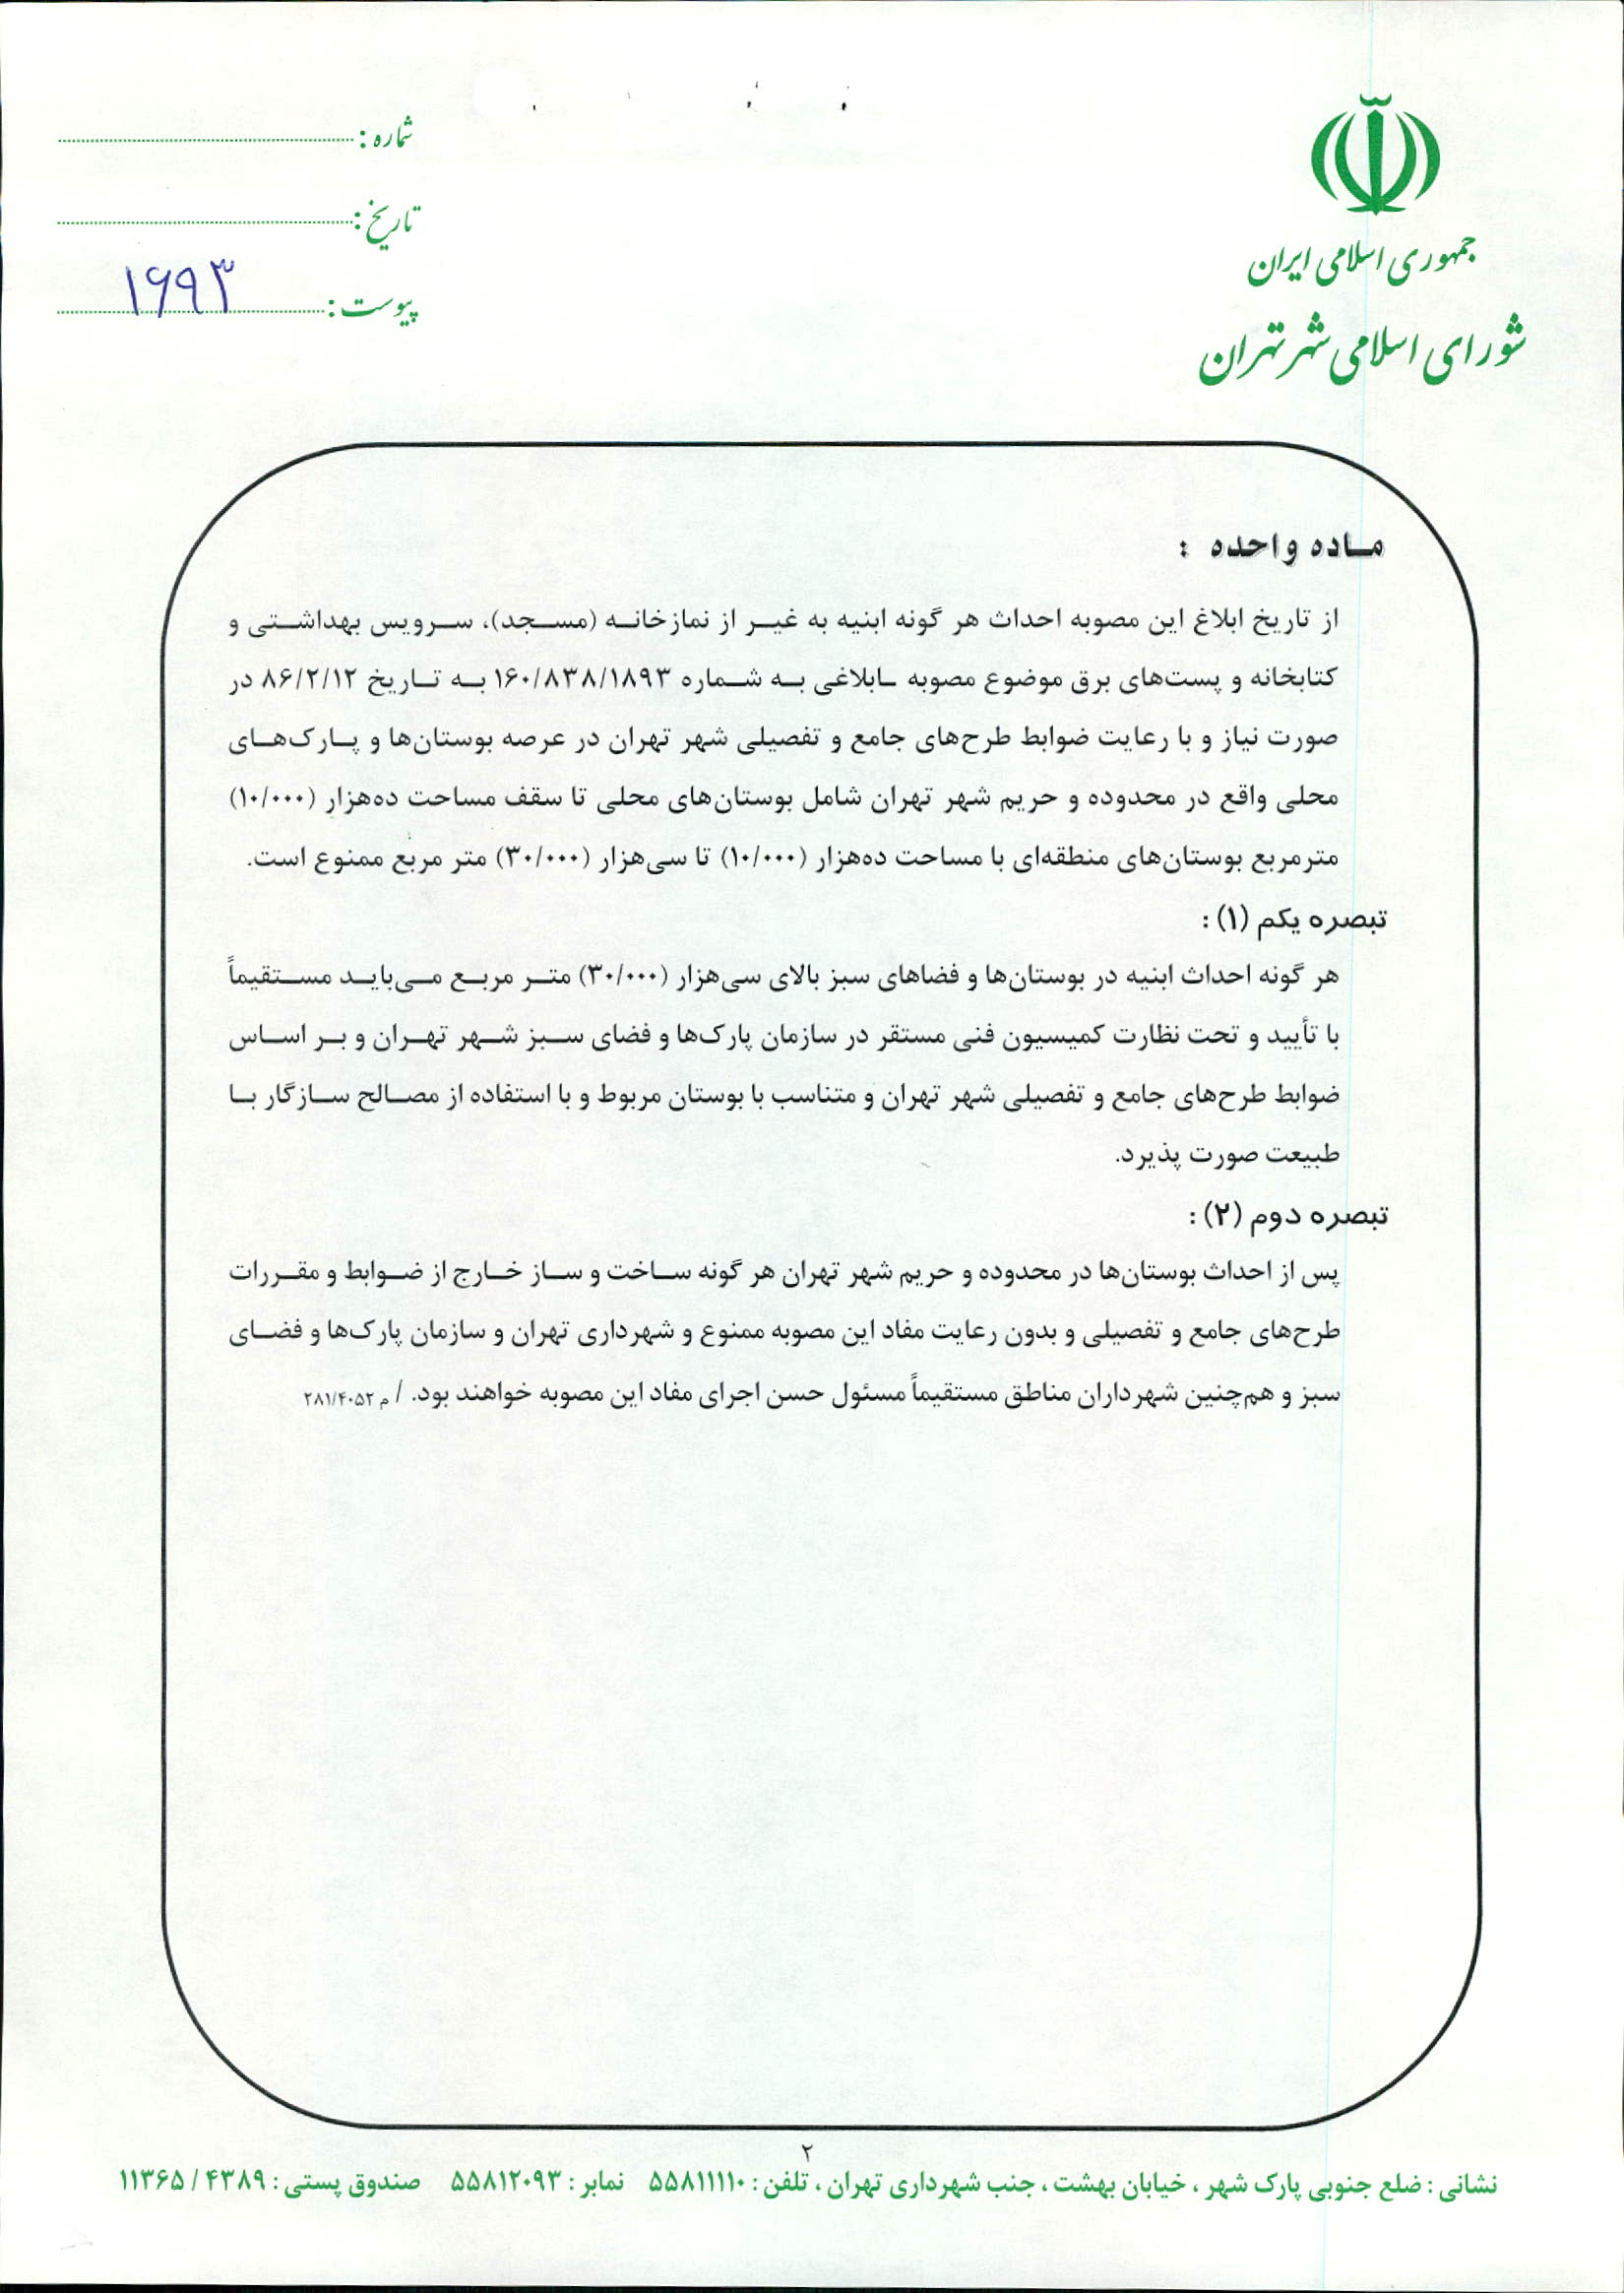 جمهوری اسلامی ایران
شورای اسلامی شهر تهران
شماره :
تاریخ :
پیوست : ۱۶۹۳
ماده واحده :
از تاریخ ابلاغ این مصوبه احداث هر گونه ابنیه به غیر از نمازخانه (مسجد)، سرویس بهداشتی و
کتابخانه و پست‌های برق موضوع مصوبه ابلاغی به شماره ۱۶۰/۸۳۸/۱۸۹۳ به تاریخ ۸۶/۲/۱۲ در
صورت نیاز و با رعایت ضوابط طرح‌های جامع و تفصیلی شهر تهران در عرصه بوستان‌ها و پارک‌های
محلی واقع در محدوده و حریم شهر تهران شامل بوستان‌های محلی تا سقف مساحت ده‌هزار (۱۰/۰۰۰)
مترمربع بوستان‌های منطقه‌ای با مساحت ده‌هزار (۱۰/۰۰۰) تا سی‌هزار (۳۰/۰۰۰) متر مربع ممنوع است.
تبصره یکم (۱) :
هر گونه احداث ابنیه در بوستان‌ها و فضاهای سبز بالای سی‌هزار (۳۰/۰۰۰) متر مربع می‌باید مستقیماً
با تأیید و تحت نظارت کمیسیون فنی مستقر در سازمان پارک‌ها و فضای سبز شهر تهران و بر اساس
ضوابط طرح‌های جامع و تفصیلی شهر تهران و متناسب با بوستان مربوط و با استفاده از مصالح سازگار با
طبیعت صورت پذیرد.
تبصره دوم (۲) :
پس از احداث بوستان‌ها در محدوده و حریم شهر تهران هر گونه ساخت و ساز خارج از ضوابط و مقررات
طرح‌های جامع و تفصیلی و بدون رعایت مفاد این مصوبه ممنوع و شهرداری تهران و سازمان پارک‌ها و فضای
سبز و هم‌چنین شهرداران مناطق مستقیماً مسئول حسن اجرای مفاد این مصوبه خواهند بود. / م ۲۸۱/۴۰۵۲
۲
نشانی : ضلع جنوبی پارک شهر ، خیابان بهشت ، جنب شهرداری تهران ، تلفن : ۵۵۸۱۱۱۱۰ نمابر : ۵۵۸۱۲۰۹۳ صندوق پستی : ۴۳۸۹ / ۱۱۳۶۵